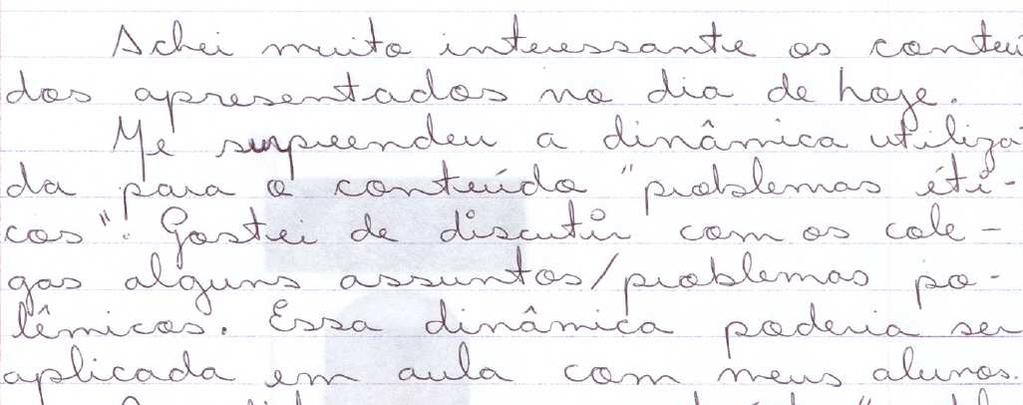 Achei muito interessante os conteú
dos apresentados no dia de hoje.
Me surpreendeu a dinâmica utiliza
da para o conteúdo "problemas éti-
cos". Gostei de discutir com os cole-
gas alguns assuntos/problemas po-
lêmicos. Essa dinâmica poderia ser
aplicada em aula com meus alunos.